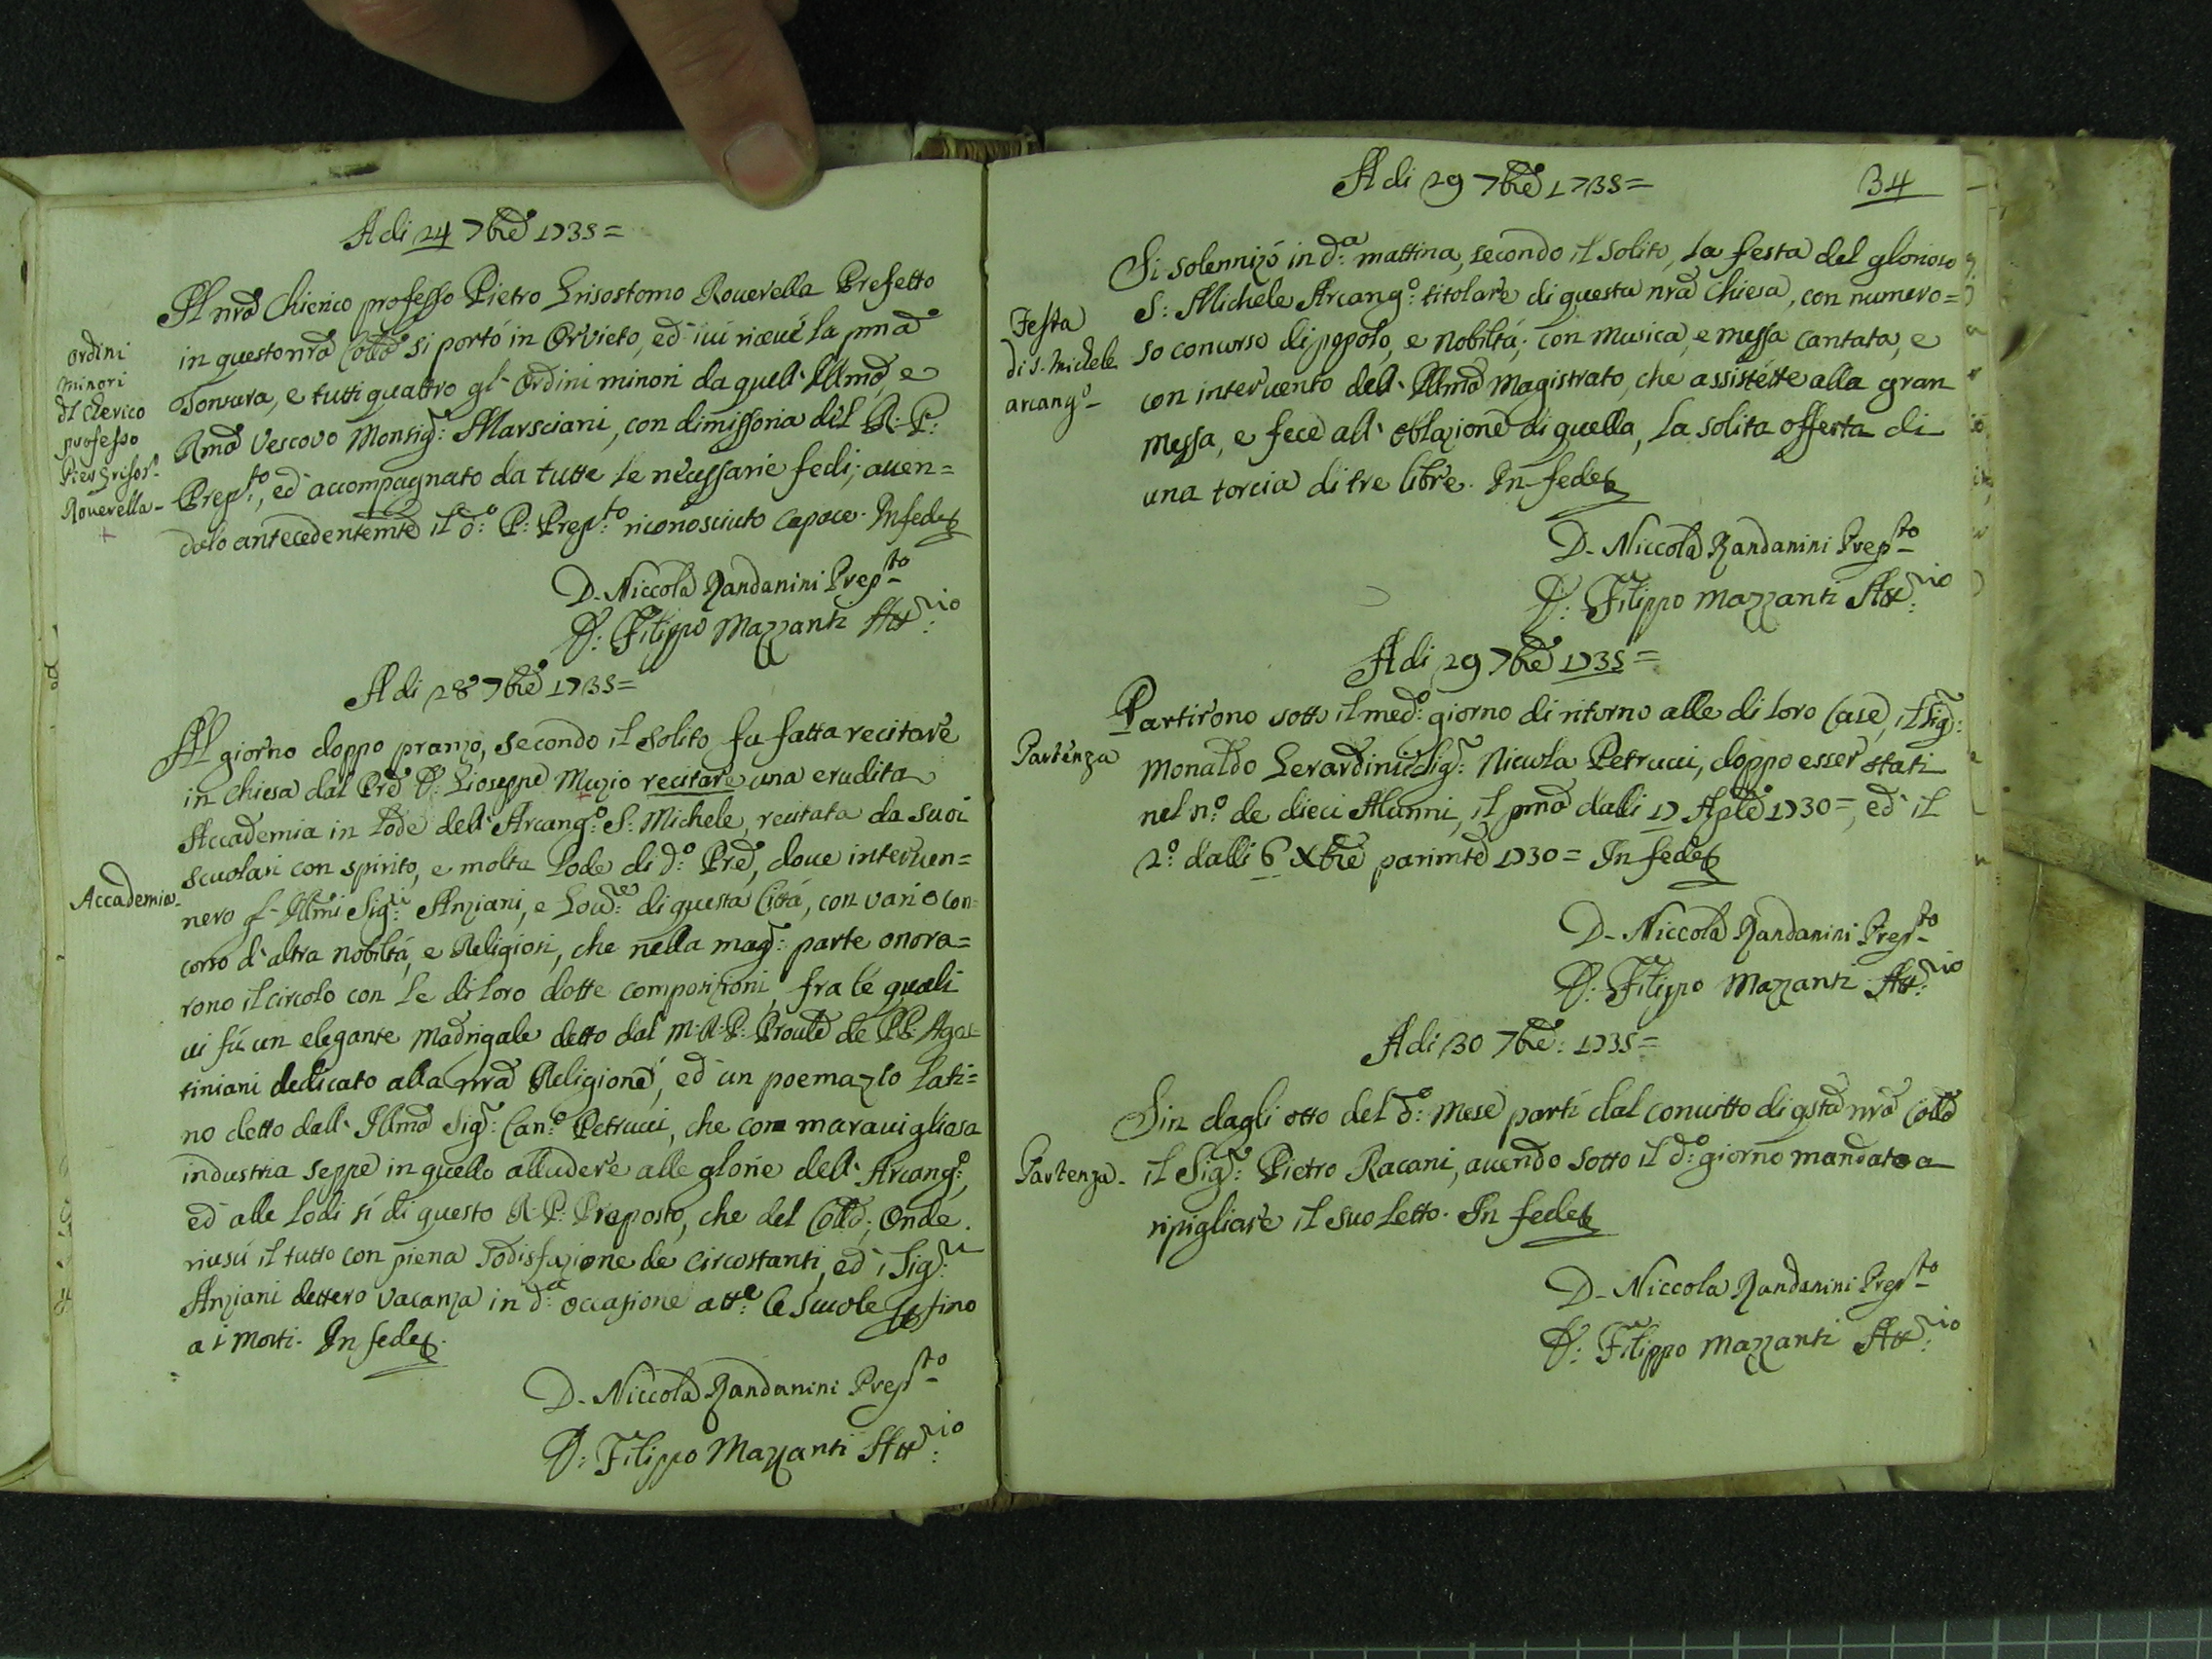 A di 24 7bre 1735=
Il nro Chierico professo Pietro Grisostomo Rouerella Prefetto
in questo nro Collo si portò in Orvieto, ed iui riceué la pma
Tonsura, e tutti quattro gl' Ordini minori da quell' Illmo, e
Rmo Vescovo Monsigr: Marsciani, con dimissoria del R: P:
Prepto:, ed accompagnato da tutte le necessarie fedi; auen=
dolo antecedentemte il do: P: Prepto: riconosciuto capace. In fede
ordini
minori
dl clerico
professo
Pier Grisos.
Rouerella-
D. Niccola Randanini Prepsto
D: Filippo Mazzanti Attrio:
A di 28 7bre 1735=
Il giorno doppo pranzo, secondo il solito fu fatta recitare
in chiesa dal Pre D: Gioseppe Muzio recitare una erudita
Accademia in lode dell' Arcango: S: Michele, recitata da suoi
scuolari con spirito, e molta lode di do: Pre, doue interuen=
Accademia-
nero gl' Illmi Sigri: Anziani, e Goure: di questa Città, con vario con=
corso d' altra nobiltà, e Religiosi, che nella magr: parte onora=
rono il circolo con le di loro dotte composizioni, fra le quali
ui fú un elegante Madrigale detto dal M: R: P: Proule de PP: Agos=
tiniani dedicato alla nra Religione, ed un poemazto Lati=
no detto dall' Illmo Sigr: Cano: Petrucci, che con marauigliosa
industria seppe in quello alludere alle glorie dell' Arcango:,
ed alle lodi sí di questo R: P: Preposto, che del Collo; Onde
riuscí il tutto con piena sodisfazione de circostanti, ed i Sigri:
Anziani dettero vacanza in da: occasione atte: le scuole fino
a i morti. In fede
D. Niccola Randanini Prepsto
D: Filippo Mazzanti Attrio:
A di 29 7bre 1735=
34
Si solennizò in da: mattina, secondo il solito, la festa del glorioso
S: Michele Arcango: titolare di questa nra Chiesa, con numero=
so concurso di popolo, e nobiltà; con musica, e messa cantata, e
con interuento dell' Illmo Magistrato, che assistette alla gran
messa, e fece all' oblazione di quella, la solita offerta di
una torcia di tre libre. In fede
Festa
di S. Michele
arcango-
D. Niccola Randanini Prepsto
D: Filippo Mazzanti Attrio:
A di 29 7bre 1735=
Partirono sotto il medo: giorno di ritorno alle di loro Case, il Sigr:
Partenza
Monaldo Gerardini e Sigr: Nicola Petrucci, doppo esser stati
nel no: de dieci Alunni, il pmo dalli 17 Aple 1730=, ed il
2o: dalli 6 Xbre parimte 1730= In fede
D. Niccola Randanini Prepsto
D: Filippo Mazzanti Attrio:
A di 30 7bre: 1735=
Sin dagli otto del do: mese partí dal conuitto di qsto nro Collo
Partenza-
il Sigr: Pietro Racani, auendo sotto il do: giorno mandato a
ripigliare il suo letto. In fede
D. Niccola Randanini Prepsto
D: Filippo Mazzanti Attrio: